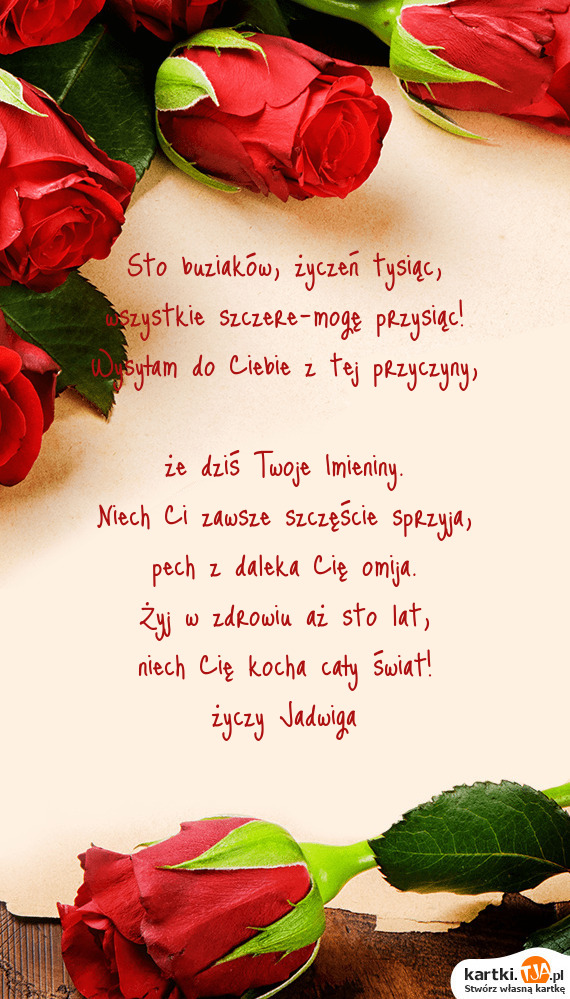 Sto buziaków, życzeń tysiąc,
wszystkie szczere-mogę przysiąc!
Wysyłam do Ciebie z tej przyczyny,
że dziś Twoje Imieniny.
Niech Ci zawsze szczęście sprzyja,
pech z daleka Cię omija.
Żyj w zdrowiu aż sto lat,
niech Cię kocha cały świat!
życzy Jadwiga
kartki.TJA.pl
Stwórz własną kartkę